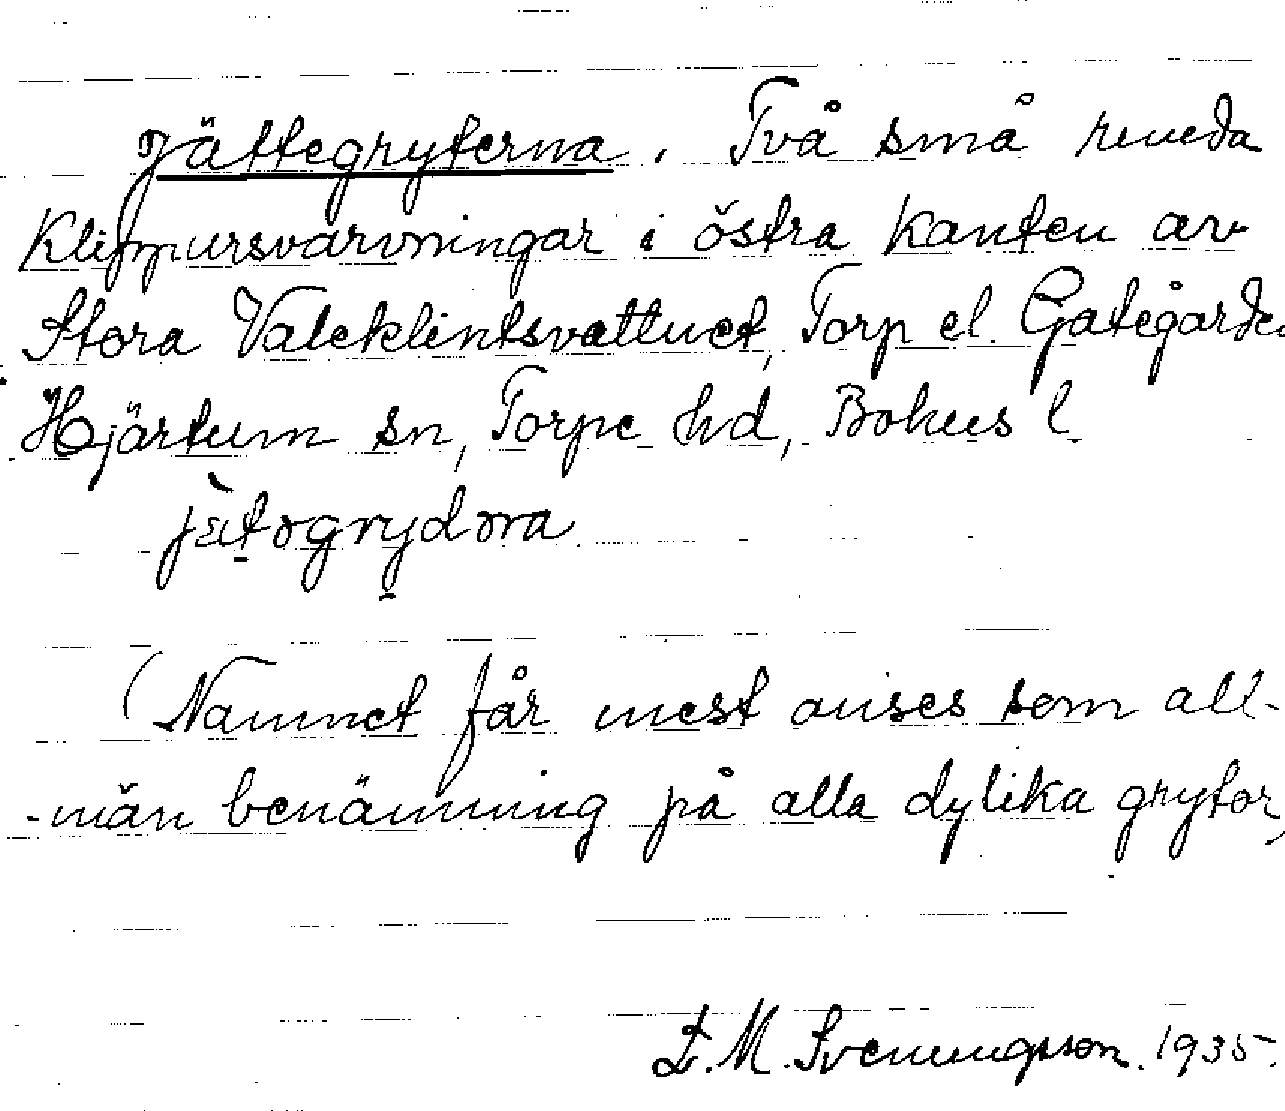 Jättegryterna. Två små runda
Klippursvarvningar i östra kanten av
Stora Valeklintsvattnet, Torp el. Gategården
Hjärtum sn, Torpe hd, Bohus l.
jätogrydora
(Namnet får mest anses som all-
-män benämning på alla dylika grytor,
M. Svenningsson. 1935.